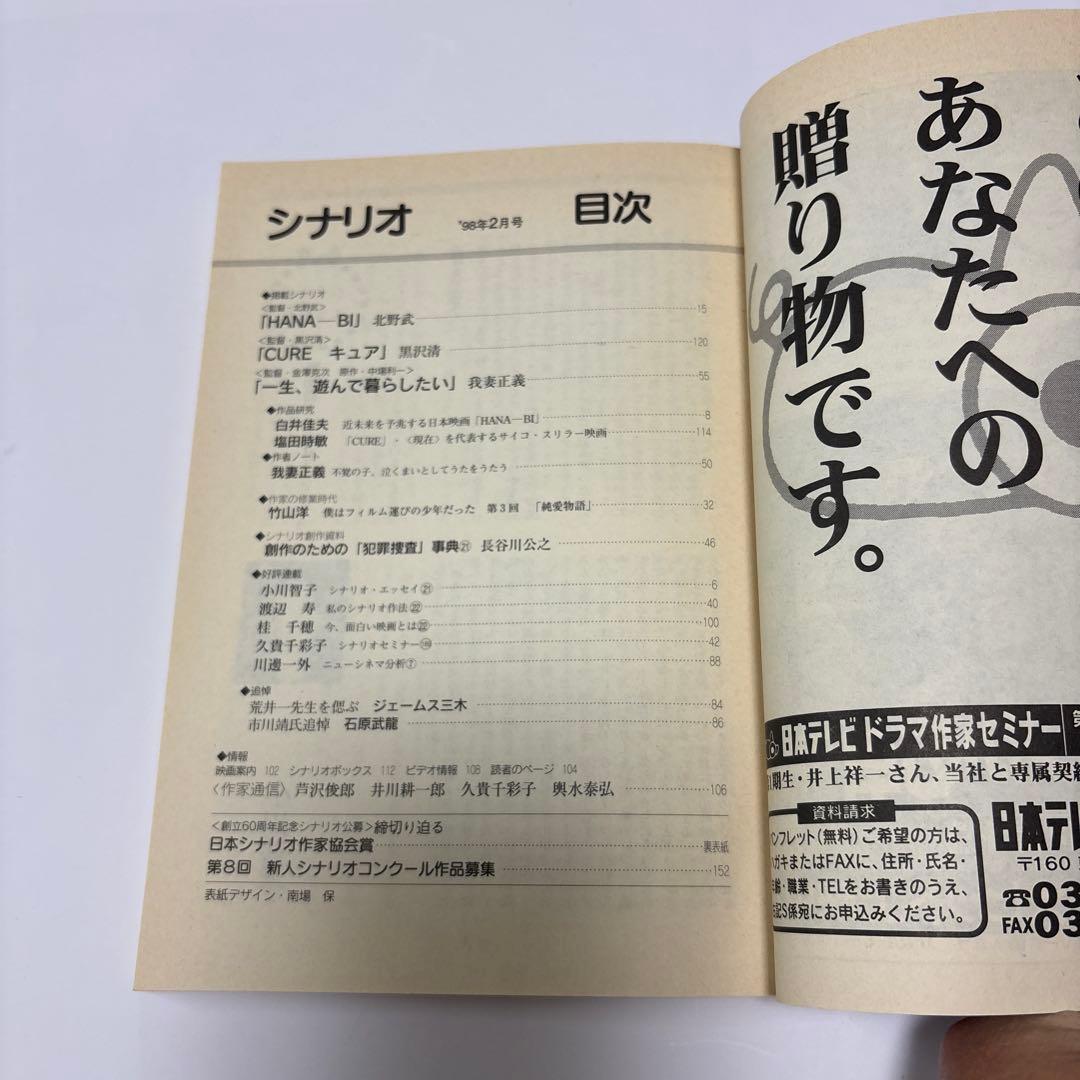 シナリオ '98年2月号 目次
◆掲載シナリオ
<監督・北野武>
「HANA―BI」 北野武 15
<監督・黒沢清>
「CURE キュア」 黒沢清 120
<監督・金澤克次 原作・中場利一>
「一生、遊んで暮らしたい」 我妻正義 55
◆作品研究
白井佳夫 近未来を予兆する日本映画「HANA―BI」 8
塩田時敏 「CURE」・〈現在〉を代表するサイコ・スリラー映画 114
◆作者ノート
我妻正義 不覚の子、泣くまいとしてうたをうたう 50
◆作家の修業時代
竹山洋 僕はフィルム運びの少年だった 第3回 「純愛物語」 32
◆シナリオ創作資料
創作のための「犯罪捜査」事典㉑ 長谷川公之 46
◆好評連載
小川智子 シナリオ・エッセイ㉑ 6
渡辺 寿 私のシナリオ作法㉒ 40
桂 千穂 今、面白い映画とは㉒ 100
久貴千彩子 シナリオセミナー 42
川邊一外 ニューシネマ分析⑦ 88
◆追悼
荒井一先生を偲ぶ ジェームス三木 84
市川靖氏追悼 石原武龍 86
◆情報
映画案内 102 シナリオボックス 112 ビデオ情報 108 読者のページ 104
〈作家通信〉 芦沢俊郎 井川耕一郎 久貴千彩子 輿水泰弘 106
<創立60周年記念シナリオ公募>締切り迫る
日本シナリオ作家協会賞 裏表紙
第8回 新人シナリオコンクール作品募集 152
表紙デザイン・南場 保
あなたへの
贈り物です。
日本テレビ ドラマ作家セミナー
期生・井上祥一さん、当社と専属契
資料請求
ンフレット(無料)ご希望の方は、
ガキまたはFAXに、住所・氏名・
齢・職業・TELをお書きのうえ、
記S係宛にお申込みください。
日本テ
〒160
☎03
FAX03